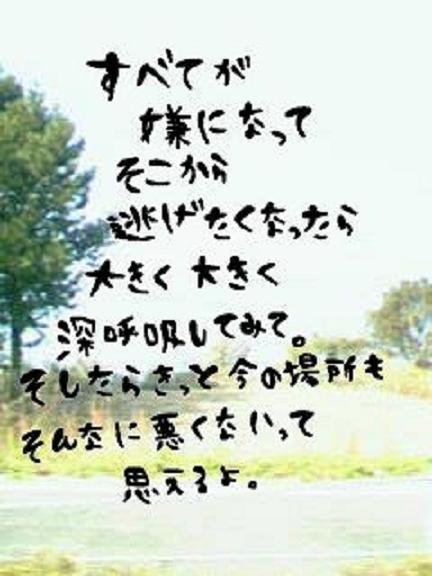 すべてが
嫌になって
そこから
逃げたくなったら
大きく 大きく
深呼吸してみて。
そしたらきっと今の場所も
そんなに悪くないって
思えるよ。